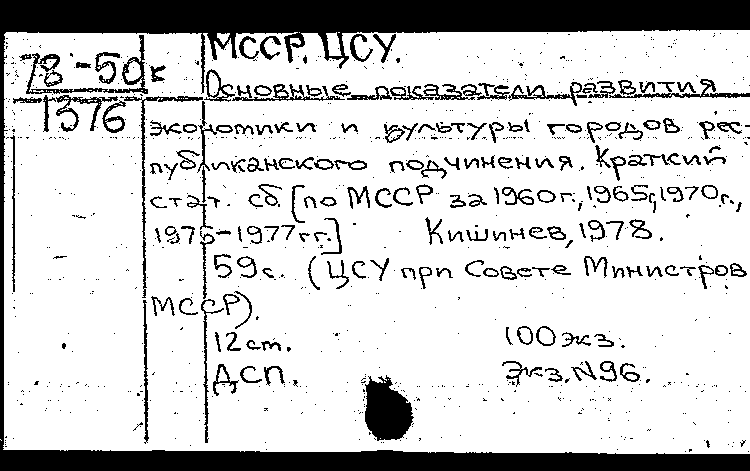 78-50к
1376
МССР. ЦСУ.
Основные показатели развития
экономики и культуры городов рес-
публиканского подчинения. Краткий
стат. сб [по МССР за 1960г., 1965г, 1970г.,
1975-1977гг.] Кишинев, 1978.
59с. (ЦСУ при Совете Министров
МССР).
12ст. 100экз.
ДСП. Экз.N96.